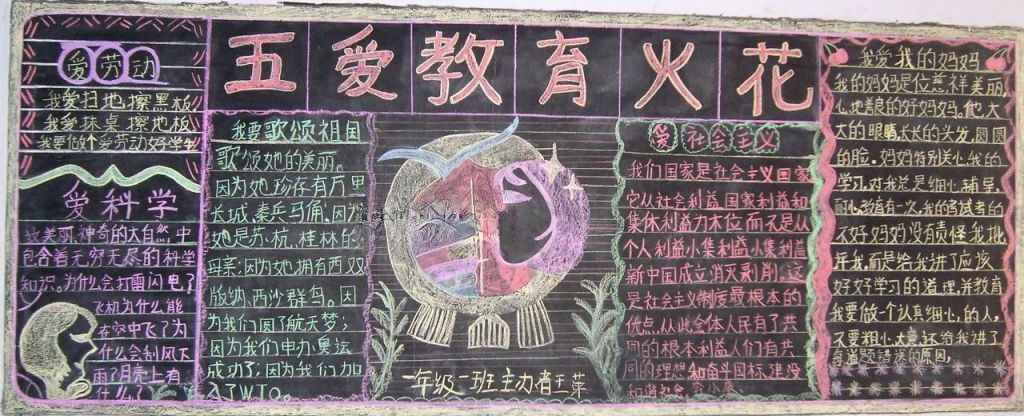 五爱教育火花
爱劳动
我爱扫地擦黑板
我爱抹桌擦地板
我要做个爱劳动好学生
爱科学
故美丽神奇的大自然中
包含着无穷无尽的科学
知识,为什么会打雷闪电了
飞机为什么能
在空中飞了为
什么会刮风下
雨?月亮上有
什么?
我要歌颂祖国
歌颂她的美丽。
因为她珍存有万里
长城,秦兵马俑,因为
她是苏、杭、桂林的
母亲;因为她拥有西双
版纳,西沙群鸟。因
为我们圆了航天梦;
因为我们申办奥运
成功了;因为我们加
入了WTO。
一年级二班主办者王萍
爱社会主义
我们国家是社会主义国家
它从社会利益国家利益和
集休利益为本位而不是从
个人利益小集利益小集利益
新中国成立消灭剥削,这
是社会主义制度最根本的
优点,从此全体人民有了共
同的根本利益人们有共
同的理想和奋斗目标建设
和谐社会。
我爱我的妈妈
我的妈妈是位慈祥美丽
心地善良的好妈妈。他大
大的眼睛,长长的头发,圆圆
的脸。妈妈特别关心我的
学习,对我总是细心辅导,
耐心教育有一次,我的考试考的
不好,妈妈没有责怪我批
评我,而是给我讲了应该
好好学习的道理,并教育
我要做个认真细心的人,
不要粗心大意,还给我讲了
有道题错误的原因。